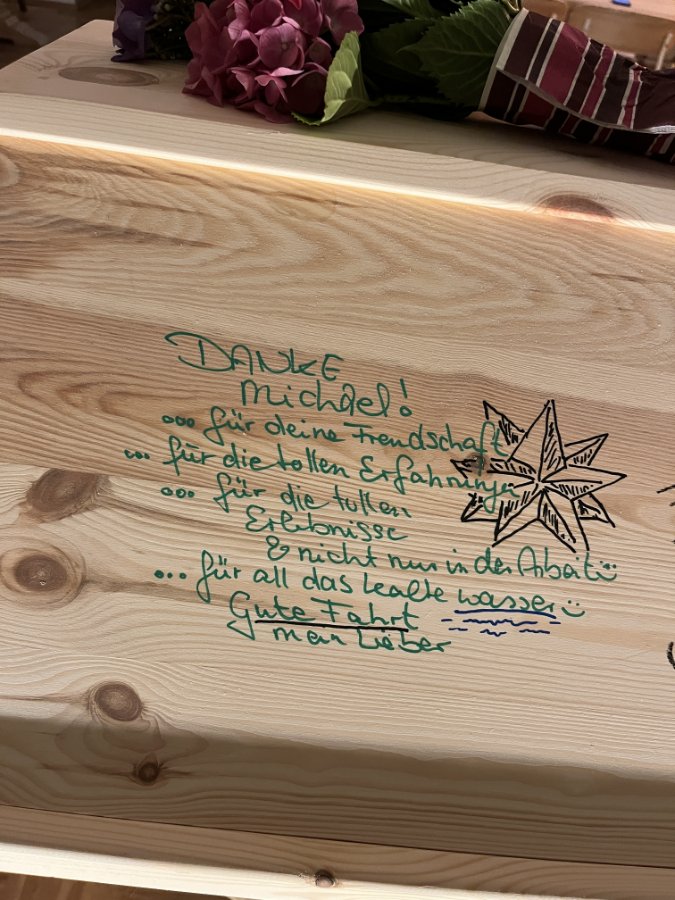 DANKE
Michael!
... für deine Frendschaft
... für die tollen Erfahrungn
... für die tollen
Erlebnisse
& nicht nur in der Arbeit
... für all das kalte wasser
Gute Fahrt
mein Lieber